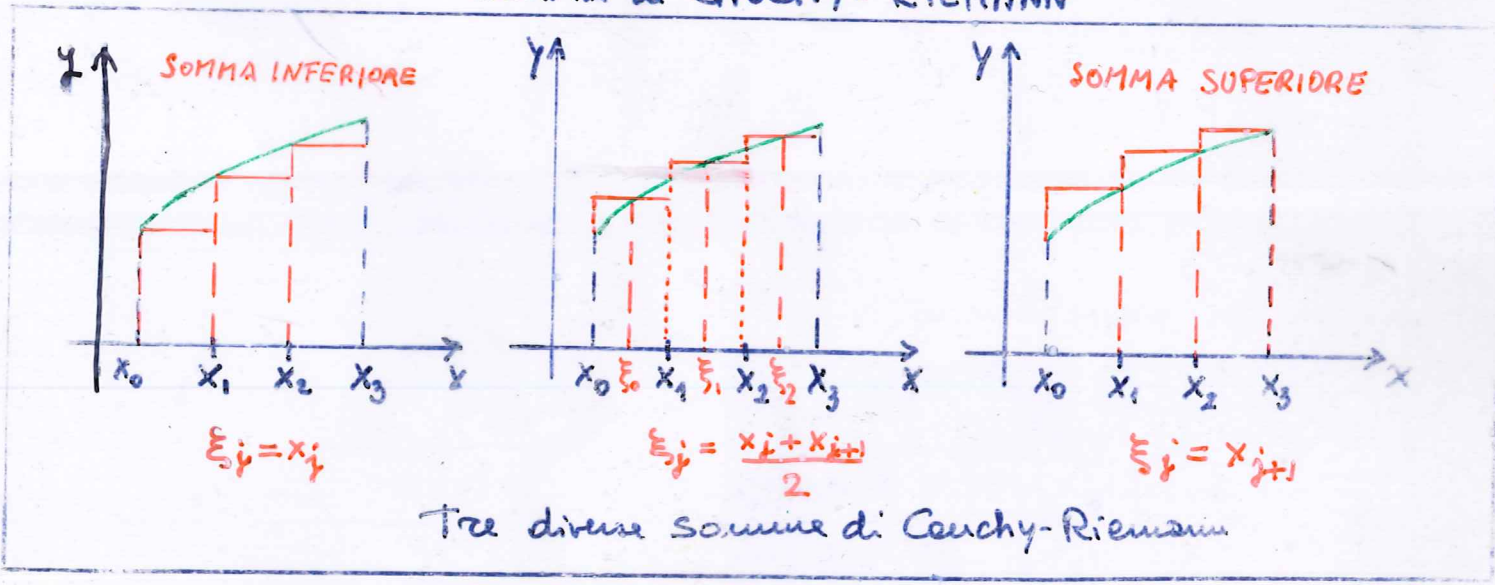 di CAUCHY-RIEMANN
y
SOMMA INFERIORE
x₀ x₁ x₂ x₃ x
ξⱼ = xⱼ
y
x₀ ξ₀ x₁ ξ₁ x₂ ξ₂ x₃ x
ξⱼ = (xⱼ + xⱼ₊₁)/2
y
SOMMA SUPERIORE
x₀ x₁ x₂ x₃ x
ξⱼ = xⱼ₊₁
Tre diverse somme di Cauchy-Riemann